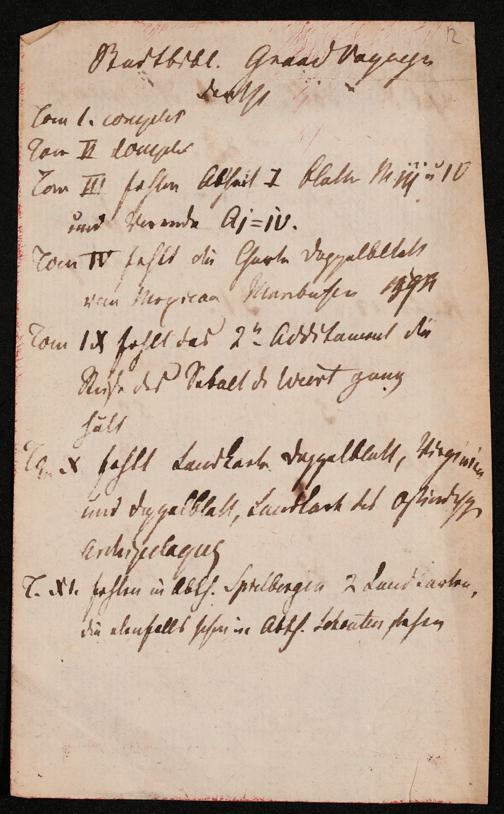 12
Stadtbibl. Grand Voyages
deutsch
Tom I. complet
Tom II complet
Tom III fehlen Abtheil I Blatt M iij u IV
und Aj=iv.
Tom IV fehlt die Charte Doppelblatt
von
Tom IX fehlt das 2te Additament die
Reise des Sebalt de Weert ganz
fehlt
T. X fehlt Landkarte Doppelblatt, Virginien
und Doppelblatt, Landkarte des Ostindisch
Archipelagus
T. XI. fehlen in Abth. Spielbergen 2 Landkarten,
die ebenfalls schon in Abth. Schouten stehen